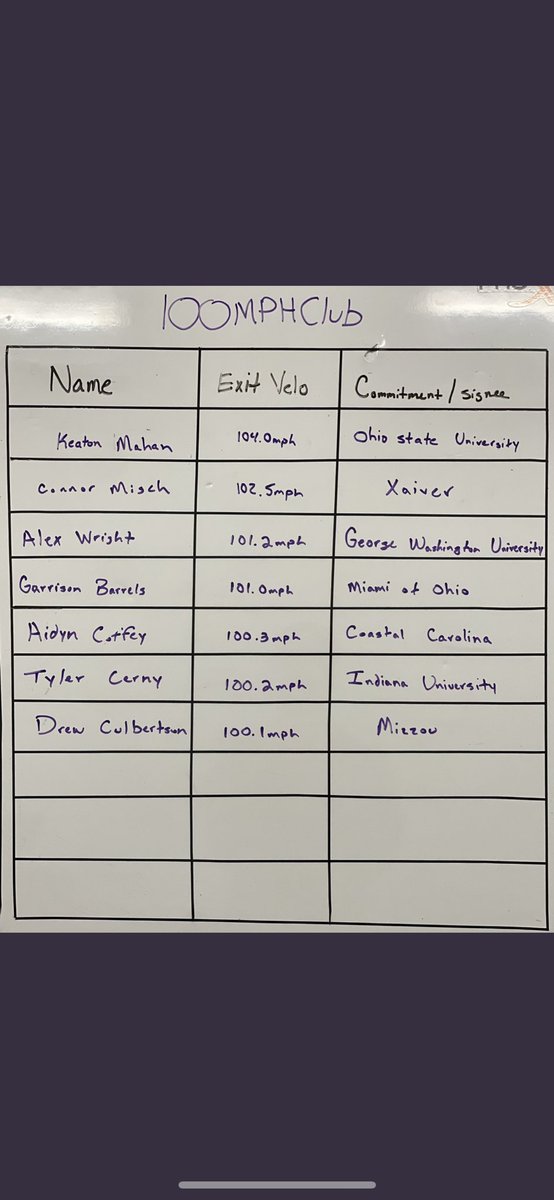 100MPH Club
Name Exit Velo Commitment / signee
Keaton Mahan 104.0mph Ohio state University
Connor Misch 102.5mph Xaiver
Alex Wright 101.2mph George Washington University
Garrison Barrels 101.0mph Miami of Ohio
Aidyn Coffey 100.3mph Coastal Carolina
Tyler Cerny 100.2mph Indiana University
Drew Culbertson 100.1mph Mizzou